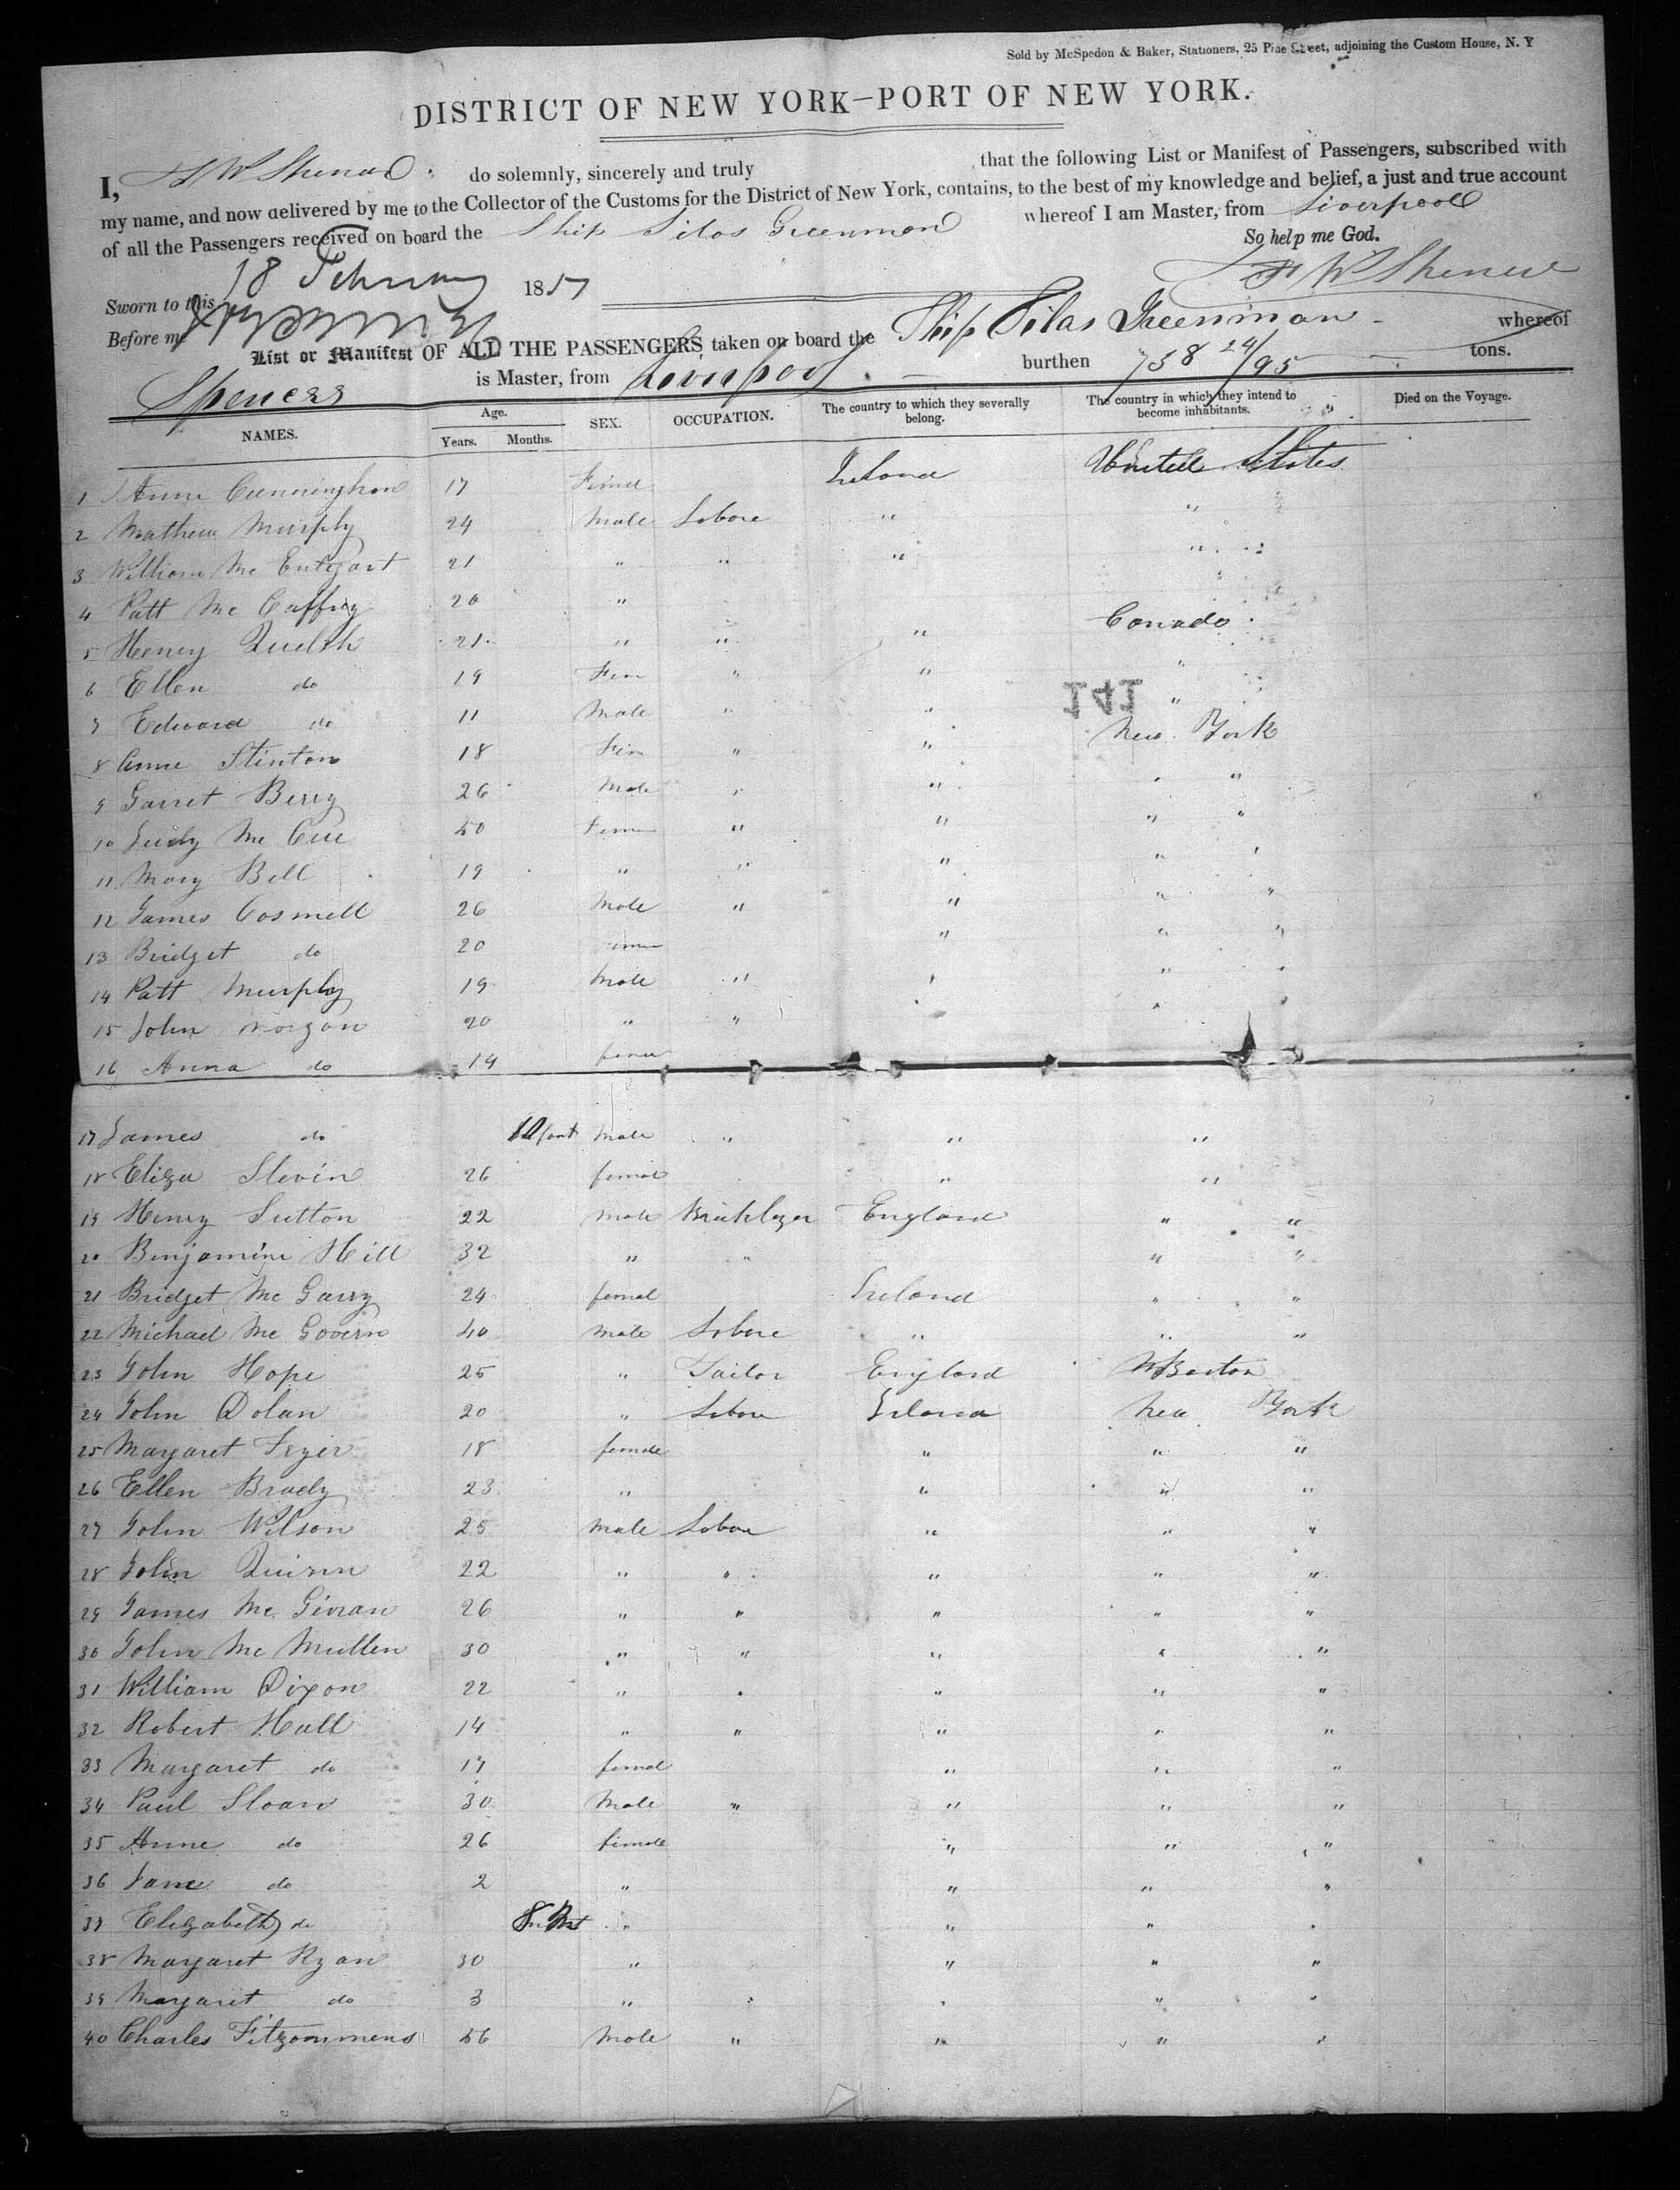 Sold by McSpedon & Baker, Stationers, 25 Pine Street, adjoining the Custom House, N. Y
DISTRICT OF NEW YORK—PORT OF NEW YORK.
I, F W Spencer do solemnly, sincerely and truly that the following List or Manifest of Passengers, subscribed with
my name, and now delivered by me to the Collector of the Customs for the District of New York, contains, to the best of my knowledge and belief, a just and true account
of all the Passengers received on board the Ship Silas Greenman whereof I am Master, from Liverpool
So help me God.
Sworn to this 18 February 1851 F W Spencer
Before me
List or Manifest OF ALL THE PASSENGERS taken on board the Ship Silas Greenman whereof
Spencer is Master, from Liverpool burthen 758 24/95 tons.
NAMES. Age. Years. Months. SEX. OCCUPATION. The country to which they severally belong. The country in which they intend to become inhabitants. Died on the Voyage.
1 Anne Cunningham 17 Femel Ireland United States
2 Mathew Murphy 24 Male Labore " "
3 William Mc Entegart 21 " " " "
4 Patt Mc Caffrey 20 "
5 Henry Quelch 21 " " " Canada
6 Ellen do 19 Fem " " "
7 Edward do 11 Male " " "
141
8 Anne Stinton 18 Fem " " New York
9 Garret Berry 26 Male " " " "
10 Judy Mc Cue 50 Fem " " " "
11 Mary Bell 19 " " " " "
12 James Cosmell 26 Male " " " "
13 Bridget do 20 Fem " " "
14 Patt Murphy 19 Male " " " "
15 John Morgan 20 " " " "
16 Anna do 19 femal
17 James do male " " "
18 Eliza Slevin 26 femal " "
19 Henry Sutton 22 Male Bricklayer England " "
20 Benjamine Hill 32 " " " "
21 Bridget Mc Garry 24 femal Ireland " "
22 Michael Mc Govern 40 Male Labore " " "
23 John Hope 25 " Tailor England Boston
24 John Dolan 20 " Labore Ireland New York
25 Margaret Fezer 18 female " " "
26 Ellen Brady 23 " " " "
27 John Wilson 25 Male Labore " " "
28 John Quinn 22 " " " " "
29 James Mc Givran 26 " " " " "
30 John Mc Mullen 30 " " " " "
31 William Dixon 22 " " " " "
32 Robert Hall 14 " " " " "
33 Margaret do 17 femal " " "
34 Paul Sloan 30 Male " " " "
35 Anne do 26 female " " "
36 Jane do 2 " " " "
37 Elizabeth do " " " "
38 Margaret Ryan 30 " " " "
39 Margaret do 3 " " " " "
40 Charles Fitzommens 56 Male " " " "